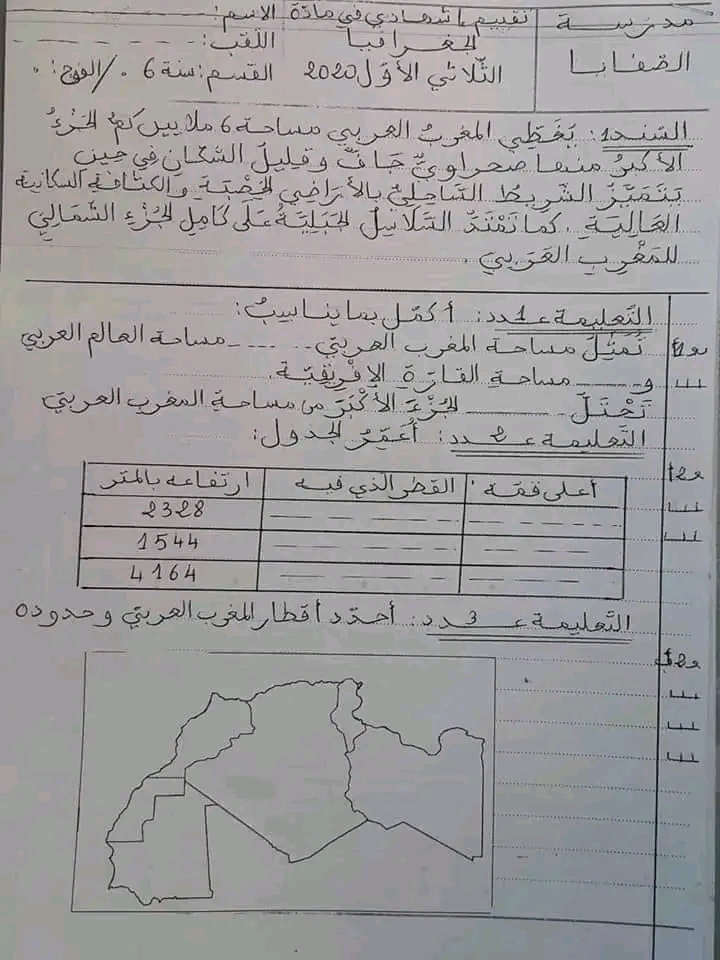 مدرسة
الصفايا
تقييم إشهادي في مادّة
الجغرافيا
الثّلاثي الأوّل 2020
الاسم:
اللّقب:
القسم: سنة 6 /الفوج:
السّند1: يُغطّي المغربُ العربي مساحة 6 ملايين كم² الجزءُ
الأكبرُ منها صحراويٌّ جَافٌّ وقليلُ السّكّانِ في حين
يتميّزُ الشّريطُ السّاحليُّ بالأراضي الخِصْبَةِ والكثافةِ السكّانيّة
العالِيَةِ. كما تمْتدُّ السّلاسلُ الجَبليّةُ علَى كاملِ الجُزْءِ الشّماليِّ
للمغْربِ العَربيِّ.
التّعليمة عـ1ـدد: أكمّل بما يناسبُ:
تُمثّلُ مساحة المغرب العربيّ ---- مساحة العالم العربي
و ---- مساحةِ القارّةِ الإفْريقيّة.
تَحْتلّ ---- الجُزْءَ الأكبَرَ من مساحة المغرب العربيّ
مع1
التّعليمة عـ2ـدد: أُعَمِّرُ الجدول:
مع2
أعلى قمّة | القطر الذي فيه | ارتفاعه بالمتر
2328
1544
4164
التّعليمة عـ3ـدد: أحدّد أقطار المغرب العربيّ وحدوده